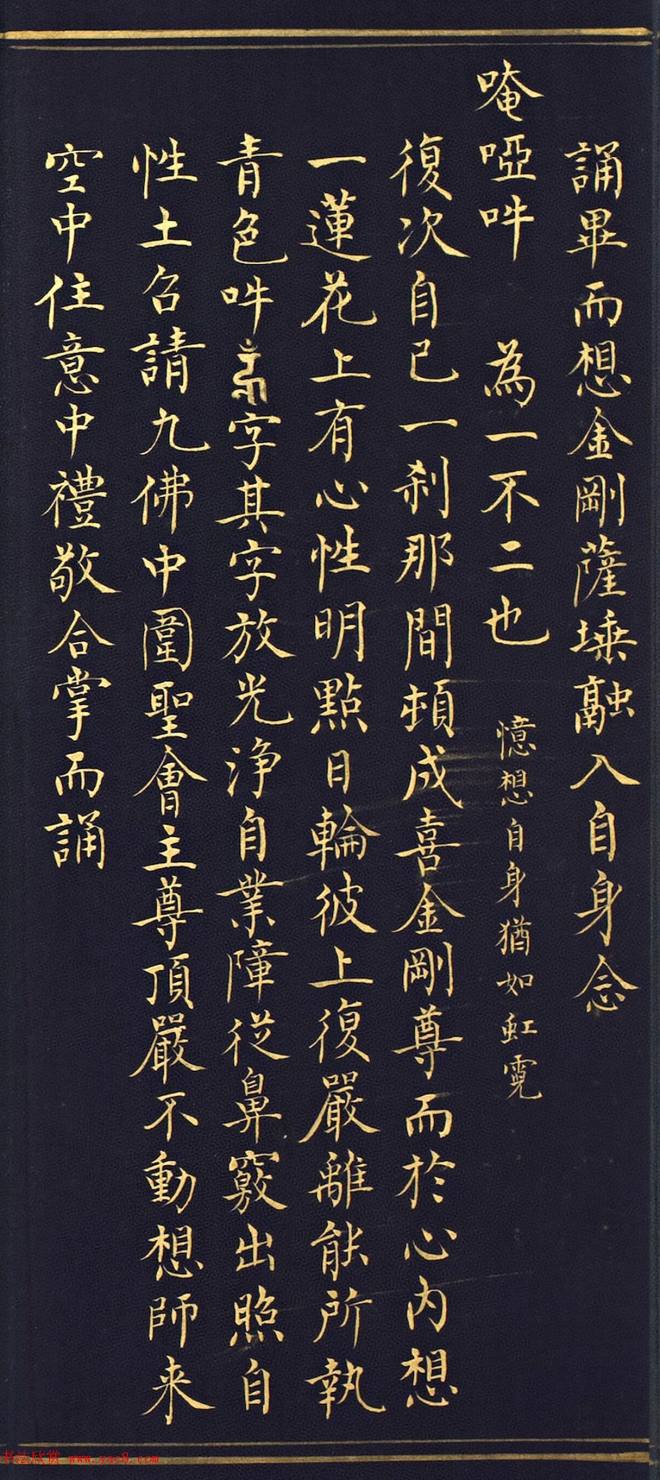 誦畢而想金剛薩埵融入自身念
唵啞吽　為一不二也　憶想自身猶如虹霓
復次自已一刹那間頓成喜金剛尊而於心內想
一蓮花上有心性明點日輪彼上復嚴離能所執
青色吽字其字放光淨自業障從鼻竅出照自
性土召請九佛中圍聖會主尊頂嚴不動想師来
空中住意中禮敬合掌而誦